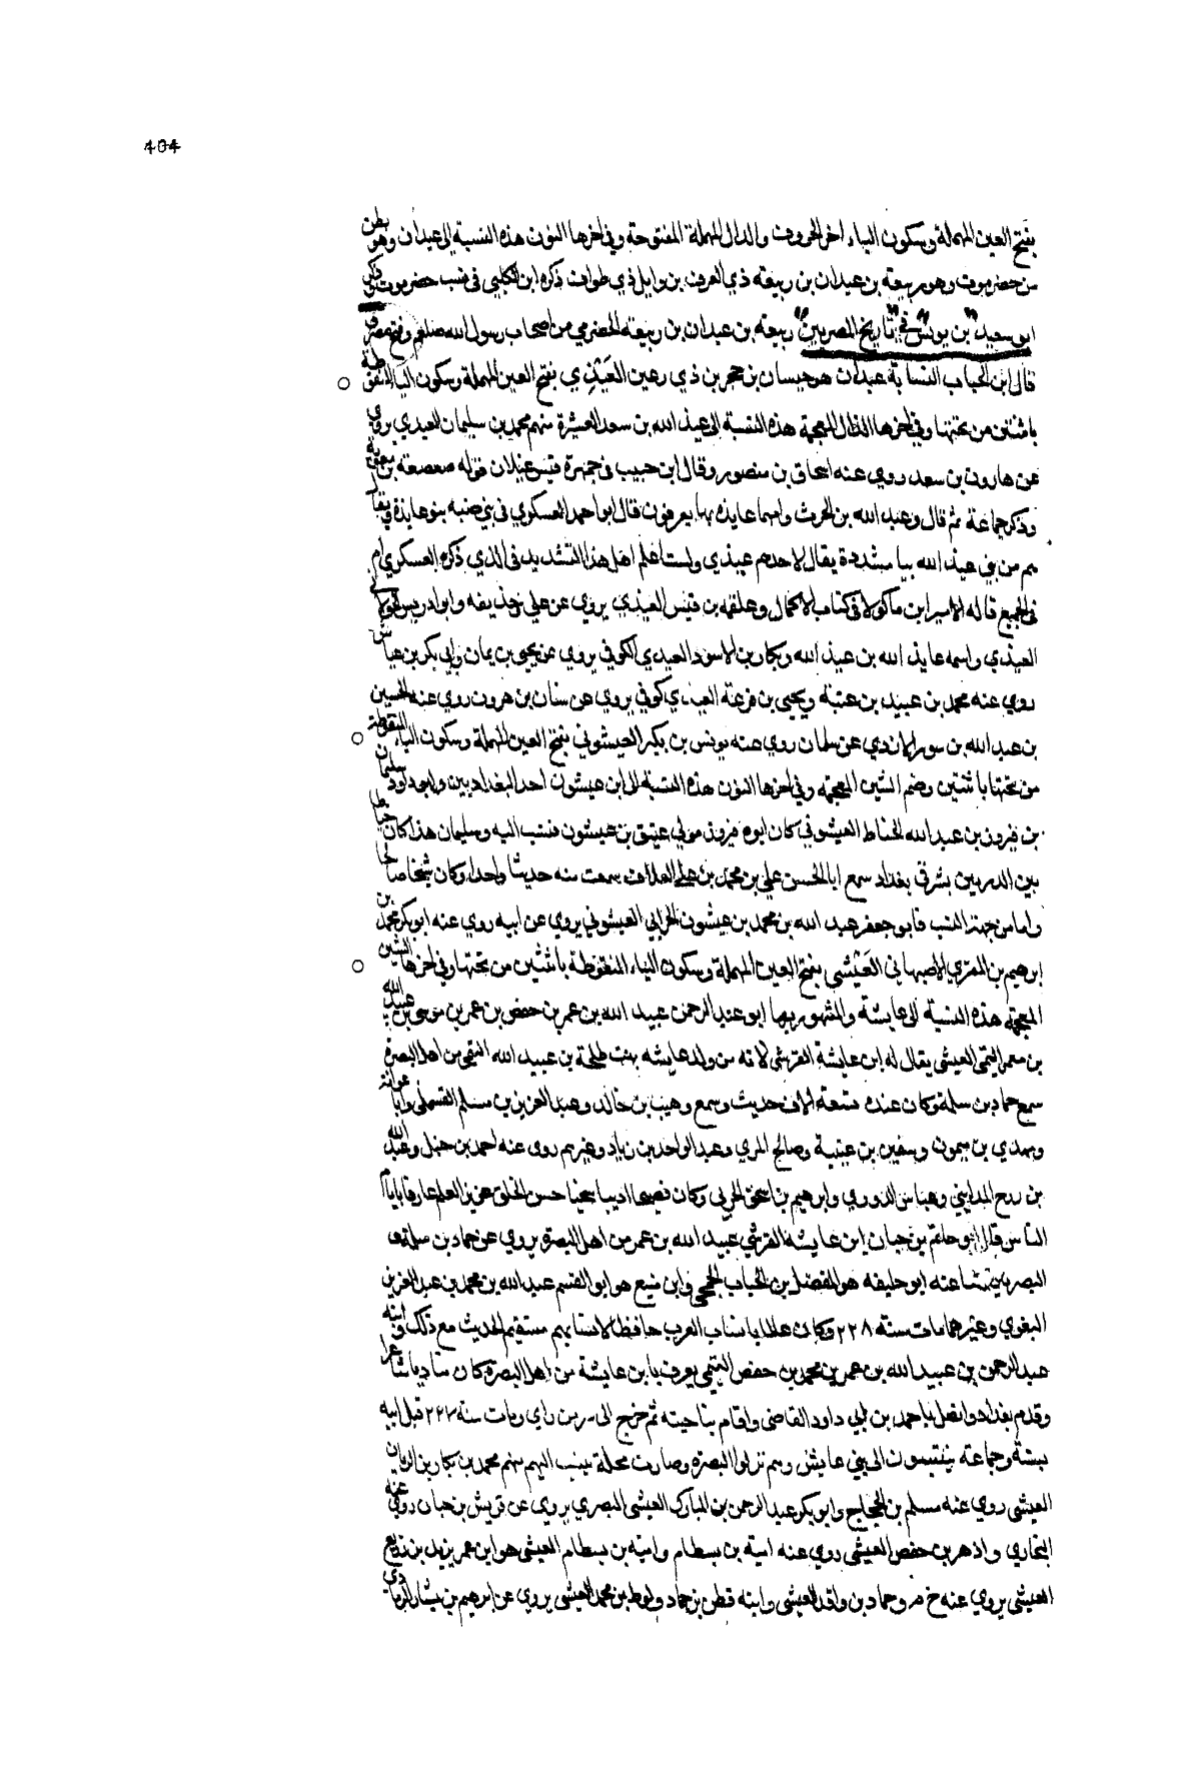 404
بفتح العين المهملة وسكون الياء اخر الحروف والدال المهملة المفتوحة وفي اخرها النون هذه النسبة الى عيدان وهو بطن
من حضرموت وهو ربيعة بن عيدان بن ربيعة ذي العرف بن وايل ذي طواف ذكره ابن الكلبي في نسب حضرموت وذكر
ابو سعيد بن يونس في تاريخ المصريين ربيعة بن عيدان بن ربيعة الحضرمي من اصحاب رسول الله صلعم وفتح مصر
قال ابن الحباب النسابة عيدان هو حيسان بن حجر بن ذي رعين العَيْذِي بفتح العين المهملة وسكون الياء المنقوطة
باثنتين من تحتها وفي اخرها الذال المعجمة هذه النسبة الى عيذ الله بن سعد العشيرة منهم محمد بن سليمان العيذي يروي
عن هارون بن سعد روي عنه اسحاق بن منصور وقال ابن حبيب في جمهرة قيس عيلان قوله صعصعة بن معوية
وذكر جماعة ثم قال وعيذ الله بن الحرث وامها عايذه بها يعرفون قال ابو احمد العسكري في بني ضبه بنو عايذة
هم من بني عيذ الله بيا مشددة يقال لاحدهم عيذي ولست اعلم اهل هذا التشديد في الذي ذكره العسكري ام
في الجميع قاله الامير ابن ماكولا في كتاب الاكمال وعلقمه بن قيس العيذي يروي عن علي وحذيفه وابو ادريس الخولاني
العيذي واسمه عايذ الله بن عبد الله وبكار بن الاسود العيذي الكوفي يروي عن يحيى بن يمان وابي بكر بن عياش
روي عنه محمد بن عبيد بن عتبة ويحيى بن العيذي كوفي يروي عن سنان بن هرون روي عنه الحسين
بن عبد الله بن عن سلمان روي عنه يونس بن بكير العيشوني بفتح العين المهملة وسكون الياء المنقوطة
من تحتها باثنتين وضم الشين المعجمة وفي اخرها النون هذه النسبة الى ابن عيشون احد البغداديين وابو داود سليمان
بن فيروز بن عبد الله الخياط العيشوني كان ابوه فيروز مولي عتيق بن عيشون فنسب اليه وسليمان هذا كان خياطا
بين الدربين بشرقي بغداد سمع ابا الحسن علي بن محمد بن علي العلاف سمعت منه حديثا واحدا وكان شيخا صالحا
واما من جهة النسب فابو جعفر عبد الله بن محمد بن عيشون الحراني العيشوني يروي عن ابيه روي عنه ابو بكر محمد بن
ابرهيم بن المقري الاصبهاني العَيْشي بفتح العين المهملة وسكون الياء المنقوطة باثنتين من تحتها وفي اخرها الشين
المعجمة هذه النسبة الى عايشة والمشهور بها ابو عبد الرحمن عبيد الله بن عمر بن حفص بن عمر بن موسى بن عبيد الله
بن معمر التيمي العيشي يقال له ابن عايشة القرشي لانه من ولد عايشه بنت طلحة بن عبيد الله التيمي من اهل البصرة
سمع حماد بن سلمة وكان عنده تسعة الاف حديث وسمع وهيب بن خالد وعبد العزيز بن مسلم القسملي وابا عوانة
ومهدي بن ميمون وسفين بن عيينة وصالح المري وعبد الواحد بن زياد وغيرهم روى عنه احمد بن حنبل وعبد الله
بن روح المدايني وعباس الدوري وابرهيم بن اسحق الحربي وكان فصيحا اديبا سخيا حسن الخلق غزير العلم عارفا بايام
الناس قال ابو حاتم بن حبان ابن عايشة القرشي عبيد الله بن عمر من اهل البصرة يروي عن حماد بن سلمة
البصريين ثنا عنه ابو خليفه هو الفضل بن الحباب الجمحي وابن منيع هو ابو القسم عبد الله بن محمد بن عبد العزيز
البغوي وغيرهما مات سنة ٢٢٨ وكان عالما بانساب العرب حافظا لانسابهم مستقيم الحديث مع ذلك وابنه
عبد الرحمن بن عبيد الله بن عمر بن محمد بن حفص التيمي يعرف بابن عايشة من اهل البصرة كان متادبا شاعرا
وقدم بغداد واتصل باحمد بن ابي داود القاضي واقام بناحيته ثم خرج الى سر من راي ومات سنة ٢٢٧ قبل ابيه
بسنة وجماعة ينتسبون الى بني عايش وهم نزلوا البصرة وصارت محلة تنسب اليهم منهم محمد بن بكار بن الريان
العيشي روي عنه مسلم بن الحجاج وابو بكر عبد الرحمن بن المبارك العيشي البصري يروي عن قريش بن حبان روي عنه
البخاري وازهر بن حفص العيشي روي عنه امية بن بسطام وامية بن بسطام العيشي هو ابن عم يزيد بن زريع
العيشي يروي عنه خ م وحماد بن واقد العيشي وابنه فطر بن حماد ولوط بن محمد العيشي يروي عن ابرهيم بن بشار الرمادي